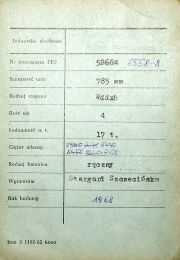 Jednostka służbowa
Nr inwentarza PKP 5266 2558-8
Szerokość toru 785 mm
Rodzaj wagonu Wddxh
Ilość osi 4
Ładowność w t. 17 t.
Ciężar własny
6450
Rodzaj hamulca ręczny
Wytwórnia Stargard Szczecińsko
Rok budowy 1968